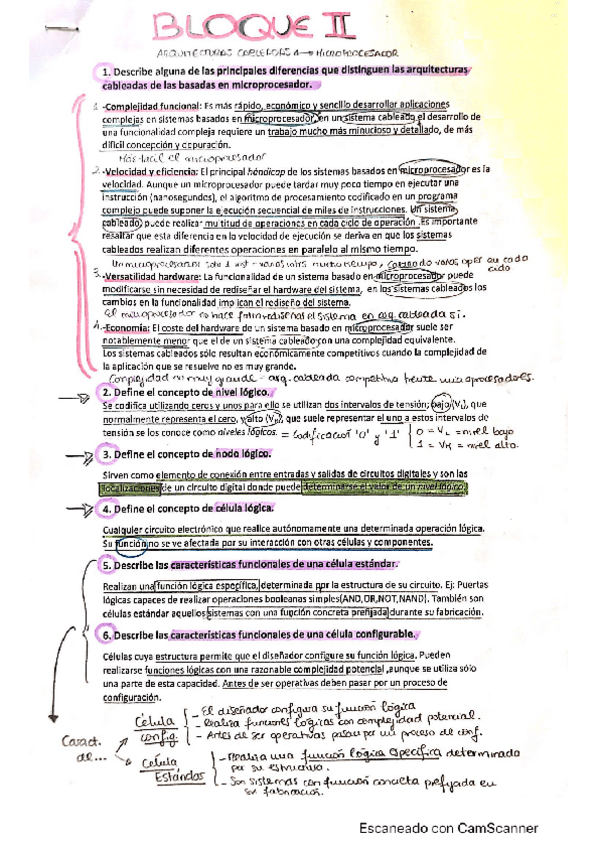 BLOQUE II
ARQUITECTURAS CABLEADAS → MICROPROCESADOR
1. Describe alguna de las principales diferencias que distinguen las arquitecturas
cableadas de las basadas en microprocesador.
1 -Complejidad funcional: Es más rápido, económico y sencillo desarrollar aplicaciones
complejas en sistemas basados en microprocesador, en un sistema cableado el desarrollo de
una funcionalidad compleja requiere un trabajo mucho más minucioso y detallado, de más
difícil concepción y depuración.
Más fácil el microprocesador
2.-Velocidad y eficiencia: El principal hándicap de los sistemas basados en microprocesador es la
velocidad. Aunque un microprocesador puede tardar muy poco tiempo en ejecutar una
instrucción (nanosegundos), el algoritmo de procesamiento codificado en un programa
complejo puede suponer la ejecución secuencial de miles de instrucciones. Un sistema
cableado puede realizar multitud de operaciones en cada ciclo de operación. Es importante
resaltar que esta diferencia en la velocidad de ejecución se deriva en que los sistemas
cableados realizan diferentes operaciones en paralelo al mismo tiempo.
Un microprocesador solo 1 inst - varias inst mucho tiempo, cableado varias oper en cada
ciclo
3.-Versatilidad hardware: La funcionalidad de un sistema basado en microprocesador puede
modificarse sin necesidad de rediseñar el hardware del sistema, en los sistemas cableados los
cambios en la funcionalidad implican el rediseño del sistema.
El microprocesador no hace falta rediseñar el sistema en arq. cableada sí.
4.-Economía: El coste del hardware de un sistema basado en microprocesador suele ser
notablemente menor que el de un sistema cableado con una complejidad equivalente.
Los sistemas cableados sólo resultan económicamente competitivos cuando la complejidad de
la aplicación que se resuelve no es muy grande.
Complejidad no muy grande - arq. cableada competitiva frente microprocesadores.
2. Define el concepto de nivel lógico.
Se codifica utilizando ceros y unos para ello se utilizan dos intervalos de tensión; bajo(VL), que
normalmente representa el cero, y alto (VH), que suele representar el uno a estos intervalos de
tensión se los conoce como niveles lógicos. = codificación '0' y '1' { 0 = VL = nivel bajo
1 = VH = nivel alto.
3. Define el concepto de nodo lógico.
Sirven como elemento de conexión entre entradas y salidas de circuitos digitales y son las
localizaciones de un circuito digital donde puede determinarse el valor de un nivel lógico.
4. Define el concepto de célula lógica.
Cualquier circuito electrónico que realice autónomamente una determinada operación lógica.
Su función no se ve afectada por su interacción con otras células y componentes.
5. Describe las características funcionales de una célula estándar.
Realizan una función lógica específica, determinada por la estructura de su circuito. Ej: Puertas
lógicas capaces de realizar operaciones booleanas simples(AND,OR,NOT,NAND). También son
células estándar aquellos sistemas con una función concreta prefijada durante su fabricación.
6. Describe las características funcionales de una célula configurable.
Células cuya estructura permite que el diseñador configure su función lógica. Pueden
realizarse funciones lógicas con una razonable complejidad potencial ,aunque se utiliza sólo
una parte de esta capacidad. Antes de ser operativas deben pasar por un proceso de
configuración.
Caract. de...
Célula config.
- El diseñador configura su función lógica
- Realiza funciones lógicas con complejidad potencial.
- Antes de ser operativas pasan por un proceso de conf.
Célula Estándar
- Realiza una función lógica específica determinada
por su estructura.
- Son sistemas con función concreta prefijada en
su fabricación.
Escaneado con CamScanner